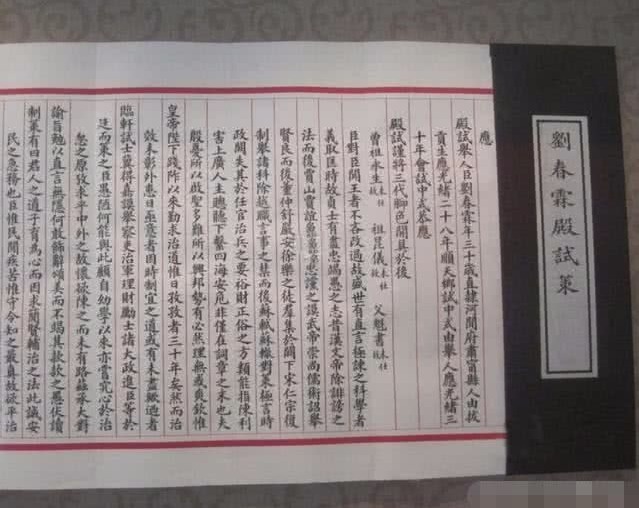 劉春霖殿試策
應
殿試舉人臣劉春霖年三十歲直隸河間府肅甯縣人由拔
貢生應光緒二十八年順天鄉試中式由舉人應光緒三
十年會試中式恭應
殿試謹將三代腳色開具於後
曾祖永生故未仕 祖昆儀故未仕 父魁書未仕
臣對臣聞王者不吝改過故盛世有直言極諫之科學者
義取匡時故貞士有盡忠竭愚之志昔漢文帝除誹謗之
法而後賈山賈誼爭盡忠讜之謨武帝崇尚儒術詔舉
賢良而後董仲舒嚴安徐樂之徒羣集於闕下宋仁宗復
制舉諸科除越職言事之禁而後蘇軾蘇轍對策極言時
政闕失其於任官治兵之要裕財正俗之方類能指陳利
害上廣人主聰聽下繫四海安危非僅在詞章之末也夫
殷憂所以啟聖多難所以興邦勢有必然理無或爽欽惟
皇帝陛下踐阼以來勤求治道惟日孜孜者三十年矣然而治
效未彰外患日亟意者因時制宜之道或有未盡歟迺者
臨軒試士冀得嘉謨舉察吏治軍理財勵士諸大政進臣等於
廷而策之臣愚陋何能與此顧自幼學以來亦嘗究心於治
忽之原攷求乎中外之故懷欲陳之而未有路茲承大對
諭旨勉以直言無隱何敢飾辭頌美而不竭其款款之愚伏讀
制策有曰君人之道子育為心而因求簡賢輔治之法此誠安
民之急務也臣惟民間疾苦惟守令知之最真故欲平治